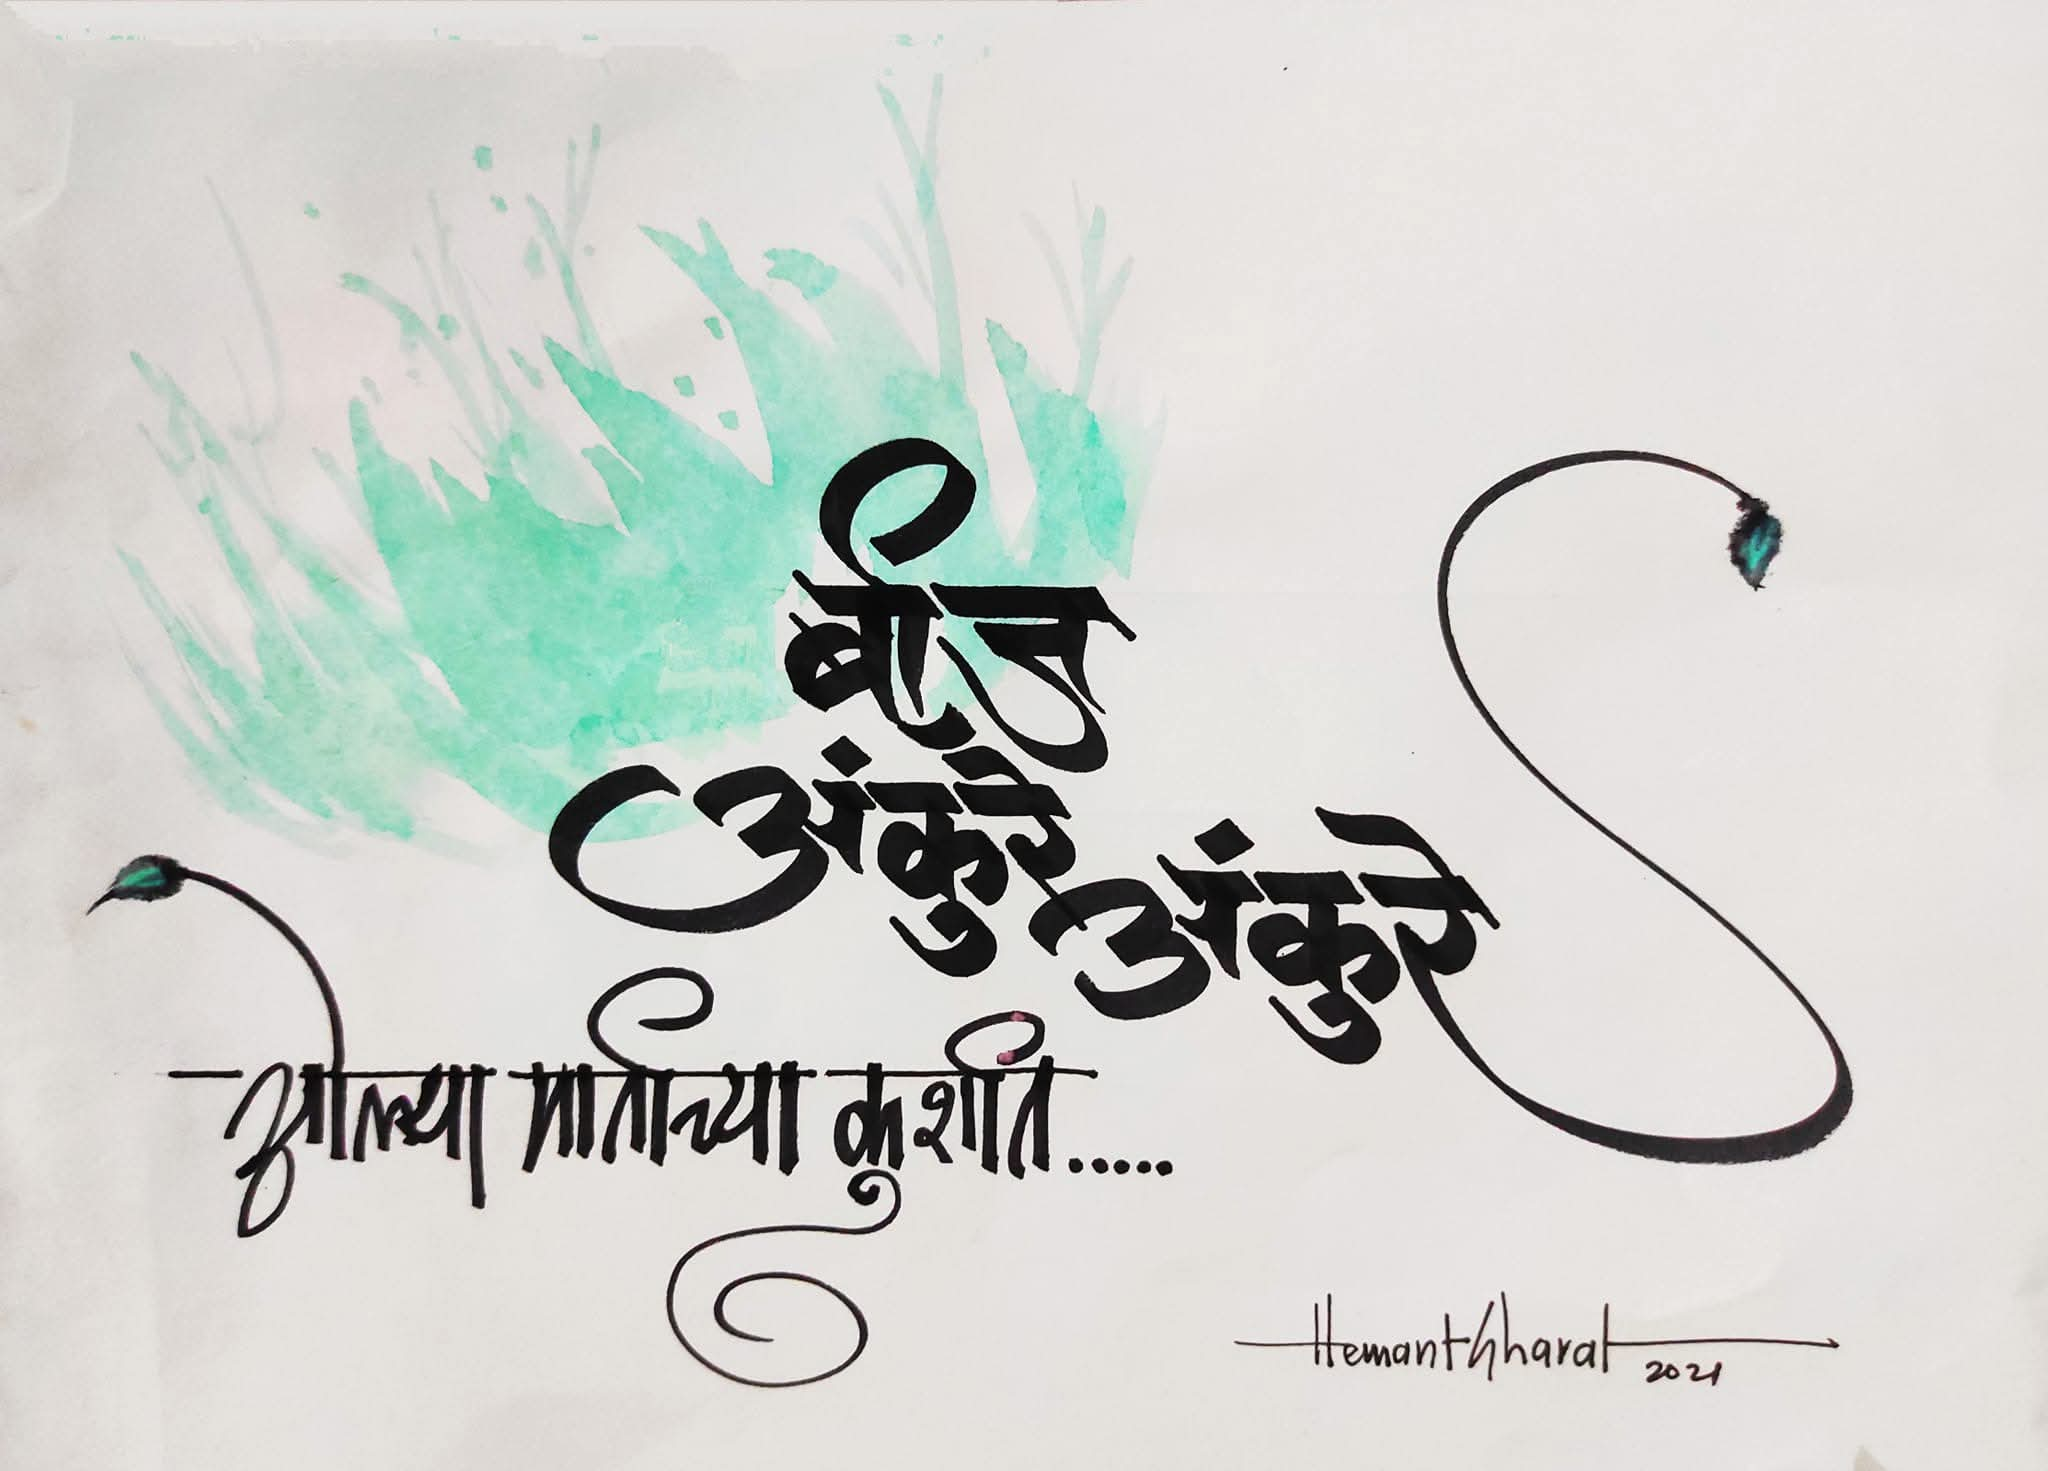 बीज
अंकुरे अंकुरे
ओल्या मातीच्या कुशीत.....
Hemant Gharat
2021